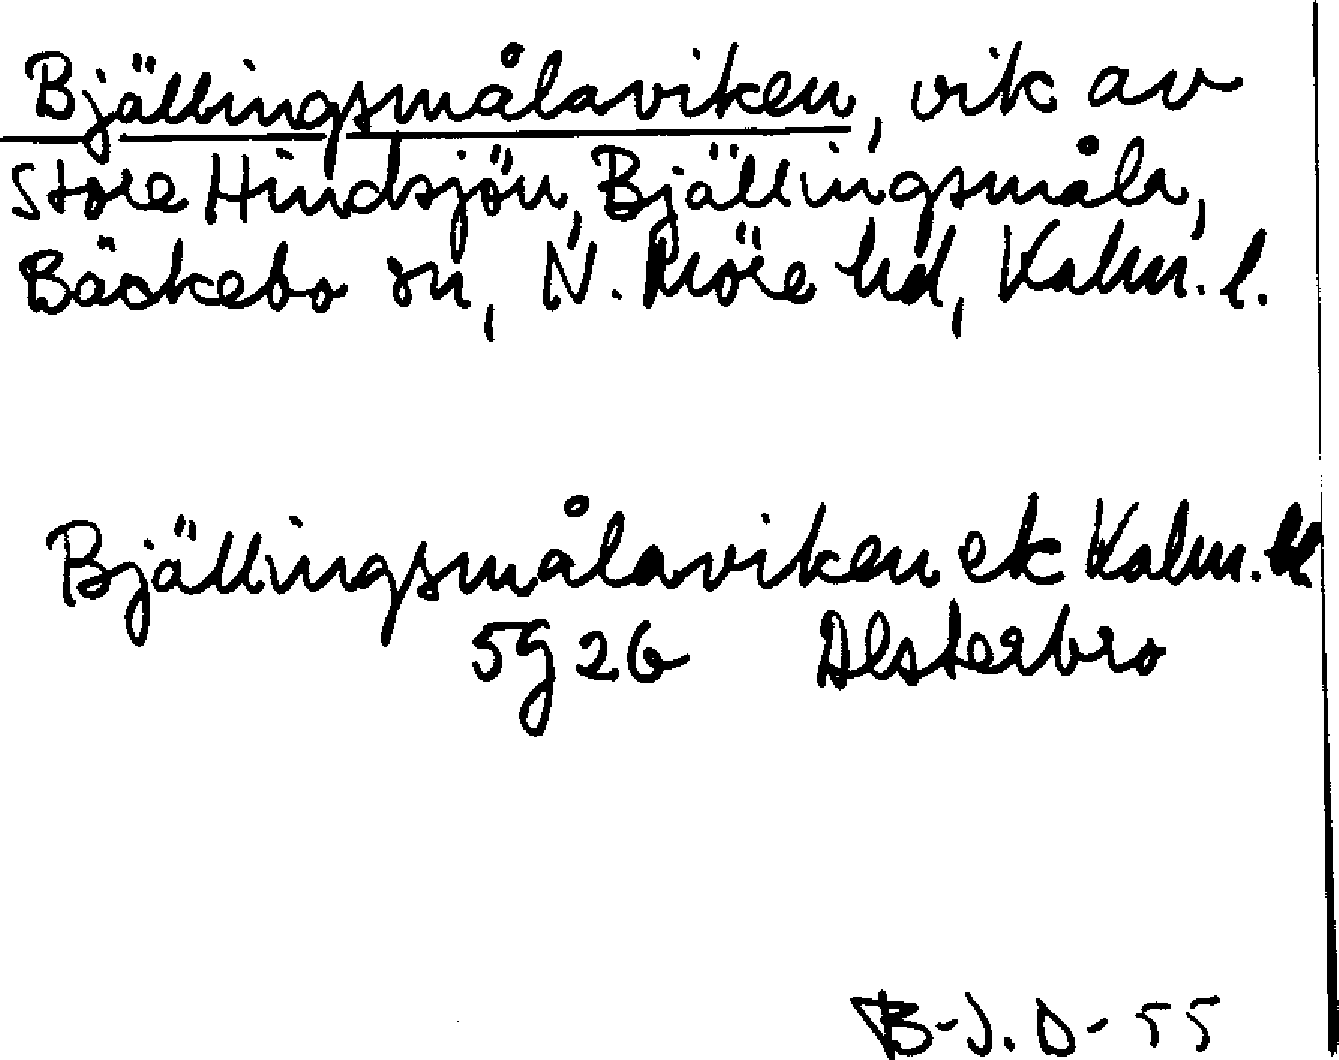 Bjällingsmålaviken, vik av
Store Hindsjön, Bjällingsmåla,
Bäckebo sn, N. Möre hd, Kalm. l.
Bjällingsmålaviken ek Kalm.
5g 2b Alsterbro
B-J. D-55